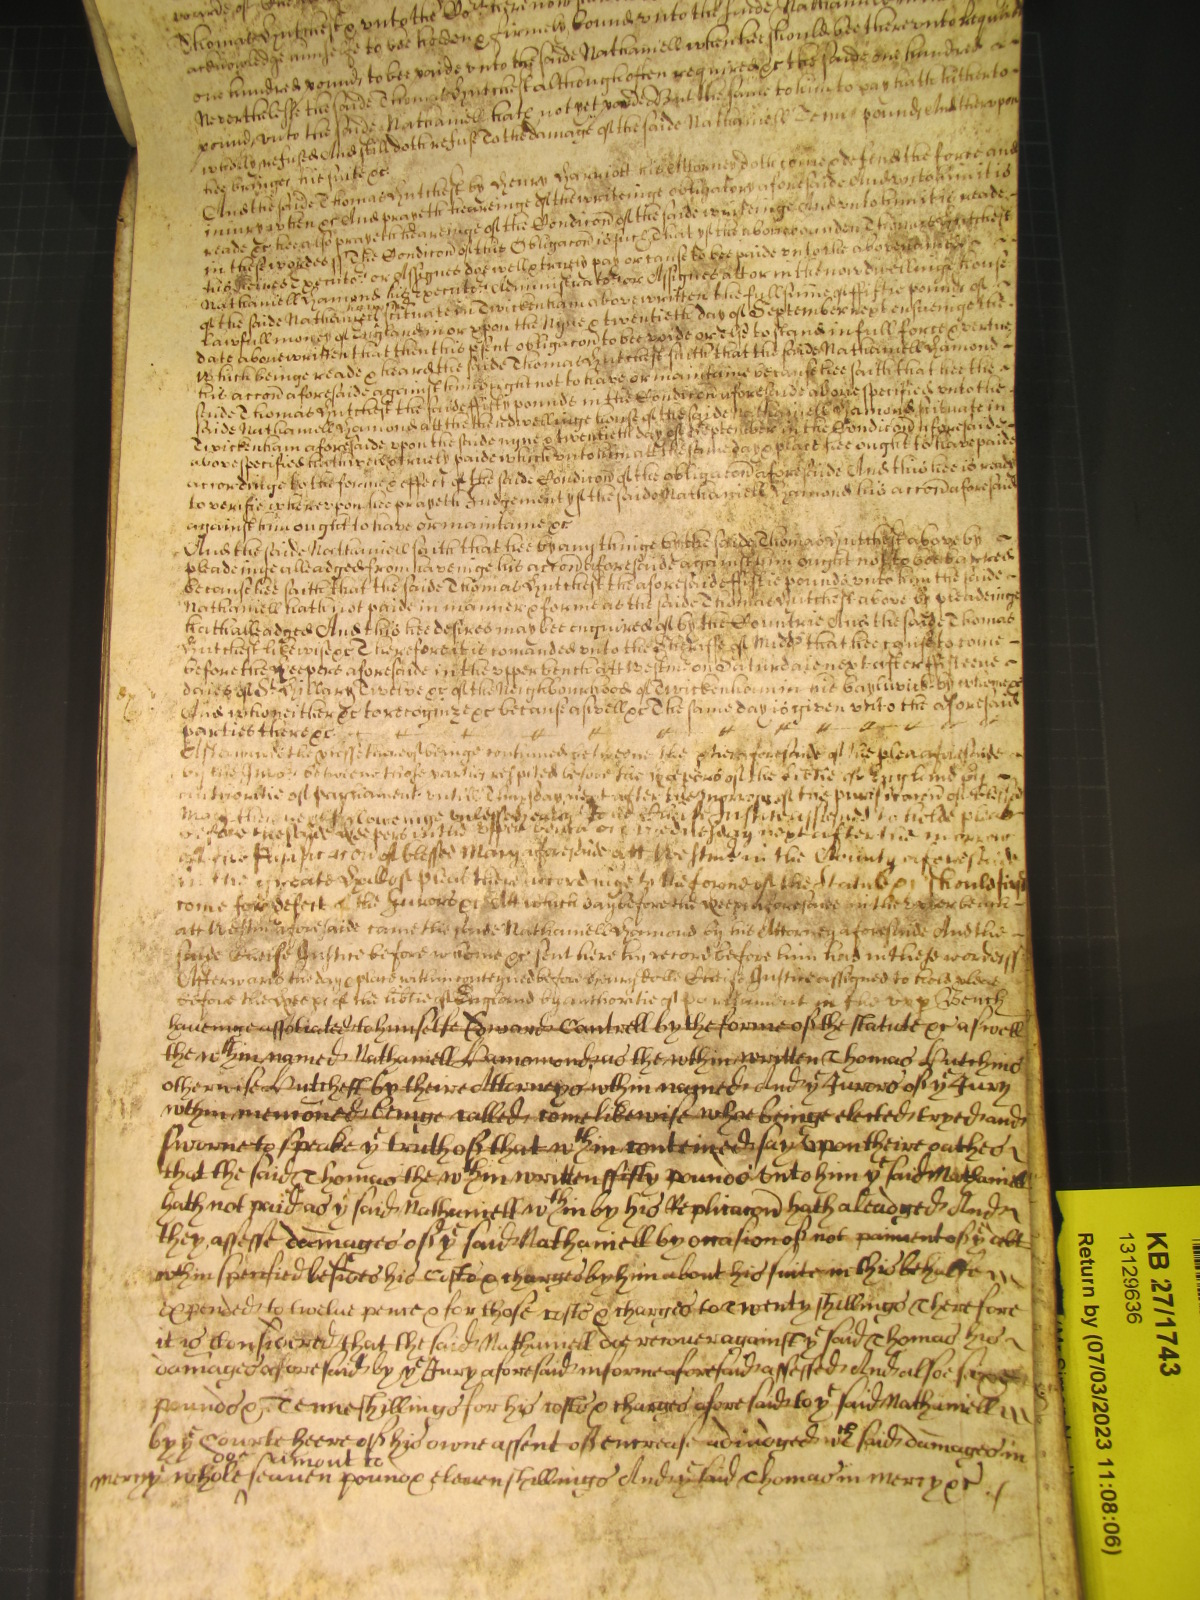 Thomas Hutchest
acknowledge himselfe to bee holden & firmely bound unto the saide Nathaniell in
one hundred pounds to bee paide unto the saide Nathaniell when hee should bee thereunto required
Neverthelesse the saide Thomas Hutchest although often required &c the saide one hundred
pounds unto the saide Nathaniell hath not yet paide But the same to him to pay hath hitherto
wholly refused And still doth refuse To the damage of the saide Nathaniell Tenne pounds And thereupon
hee bringes his suite &c
And the saide Thomas Hutchest by Henry Harriott his Attorney doth come & defend the force and
injury when &c And prayeth heareinge of the writeinge obligatory aforesaide And unto him it is
reade &c hee also prayeth heareinge of the Condicon of the saide writeinge And unto him it is reade
in these wordes ss The Condicon of this Obligacon is such That yf the above bounden Thomas Hutchest
his heires Executors or Assignes doe well & truely pay or cause to bee paide unto the above named
Nathaniell Hamond his Executors Administrators or Assignes att or in the now dwellinge house
of the saide Nathaniell scituate in Twickenham above written the full sume of fiftie pounds of
lawfull money of England in or upon the Nyne & twentieth day of September next ensueinge the
date above written that then this psent obligacon to bee voide or else to stand in full force & vertue
Which beinge reade & heard the saide Thomas Hutchest saith that the saide Nathaniell Hamond
his accon aforesaide against him ought not to have or maintaine because hee saith that hee the
saide Thomas Hutchest the saide fifty pounds in the Condicon aforesaide above specified unto the
saide Nathaniell Hamond att the the dwellinge house of the saide Nathaniell Hamond scituate in
Twickenham aforesaide upon the saide nyne & twentieth day of September in the Condicon aforesaide
above specified hath well & truely paide which unto him att the same day & place hee ought to have paide
accordinge to the forme & effect of the saide Condicon of the obligacon aforesaide And this hee is ready
to verifie whereupon hee prayeth Judgement yf the saide Nathaniell Hamond his accon aforesaid
against him ought to have or maintaine &c
And the saide Nathaniell saith that hee by any thinge by the saide Thomas Hutchest above by
pleadinge alleadged from haveinge his accon aforesaide against him ought not to bee barred
because hee saith that the saide Thomas Hutchest the aforesaide fiftie pounds unto him the saide
Nathaniell hath not paide in manner & forme as the saide Thomas Hutchest above by pleadeinge
hath alleadged And this hee desires may bee enquired of by the Countrie And the saide Thomas
Hutchest likewise &c Therefore it is comanded unto the Sheriffe of Midd that hee cause to come
before the Keepers aforesaide in the upper bench att Westmr on Saturdaie next after fifteene
dayes of St Hillary Twelve &c of the Neighbourhood of Twickenham in his bayliwick by whome &c
And who neither &c to recognize &c because aswell &c The same day is given unto the aforesaid
parties there &c
Afterwards the pcesse thereof beinge continued betweene the pties aforesaide of the plea aforesaide
by the Jurors betweene those parties respited before the Keepers of the libtie of England by
authoritie of Parliament untill Thursday next after the Morrow of the purificacon of blessed
Mary then next followeinge unlesse Henry Rolle Cheife Justice assigned to holde pleas
before the saide Keepers in the upper bench on Wednesday next after the morrow
of the Purificacon of blessed Mary aforesaide att Westmr in the County aforesaid
in the greate Hall of pleas there accordinge to the forme of the Statute &c should first
come for defect of the Jurors &c Att which day before the Keepers aforesaide in the upper bench
att Westmr aforesaide came the saide Nathaniell Hamond by his Attorney aforesaide And the
saide Cheife Justice before whome &c sent here his record before him had in these wordes ss
Afterwards the day & place within conteyned before Henry Rolle Cheife Justice assigned to hold pleas
before the Keeps of the libtie of England by authoritie of parliament in the upp Bench
haveinge assotiated to himselfe Edward Cantrell by the forme of the statute &c aswell
the wthin named Nathaniell Hamond as the wthin written Thomas Hutchins
otherwise Hutchest by theire Attorneys wthin named And ye Jurors of ye Jury
wthin mencioned beinge called come likewise whoe beinge elected tryed and
sworne to speake ye truth of that wthin conteined say upon theire oathes
that the said Thomas the wthin written fifty pounds unto him ye said Nathaniell
hath not paid as ye said Nathaniell wthin by his Replicacon hath aleadged And
they assesse damages of ye said Nathaniell by occasion of not paiment of ye debt
wthin specified besides his Costs & charges by him about his suite in this behalfe
expended to twelve pence & for those costs & charges to Twenty shillings Therefore
it is Considered that the said Nathaniell doe recover against ye said Thomas his
damages aforesaid by ye Jury aforesaid in forme aforesaid assessed And alsoe sixe
pounds & Tenne shillings for his costs & charges aforesaid to ye said Nathaniell
by ye Courte heere of his owne assent of encrease adiudged wch said damages in
mercy whole doe Amount to seaven pounds & eleaven shillings And ye said Thomas in mercy &c
KB 27/1743
13129636
Return by (07/03/2023 11:08:06)